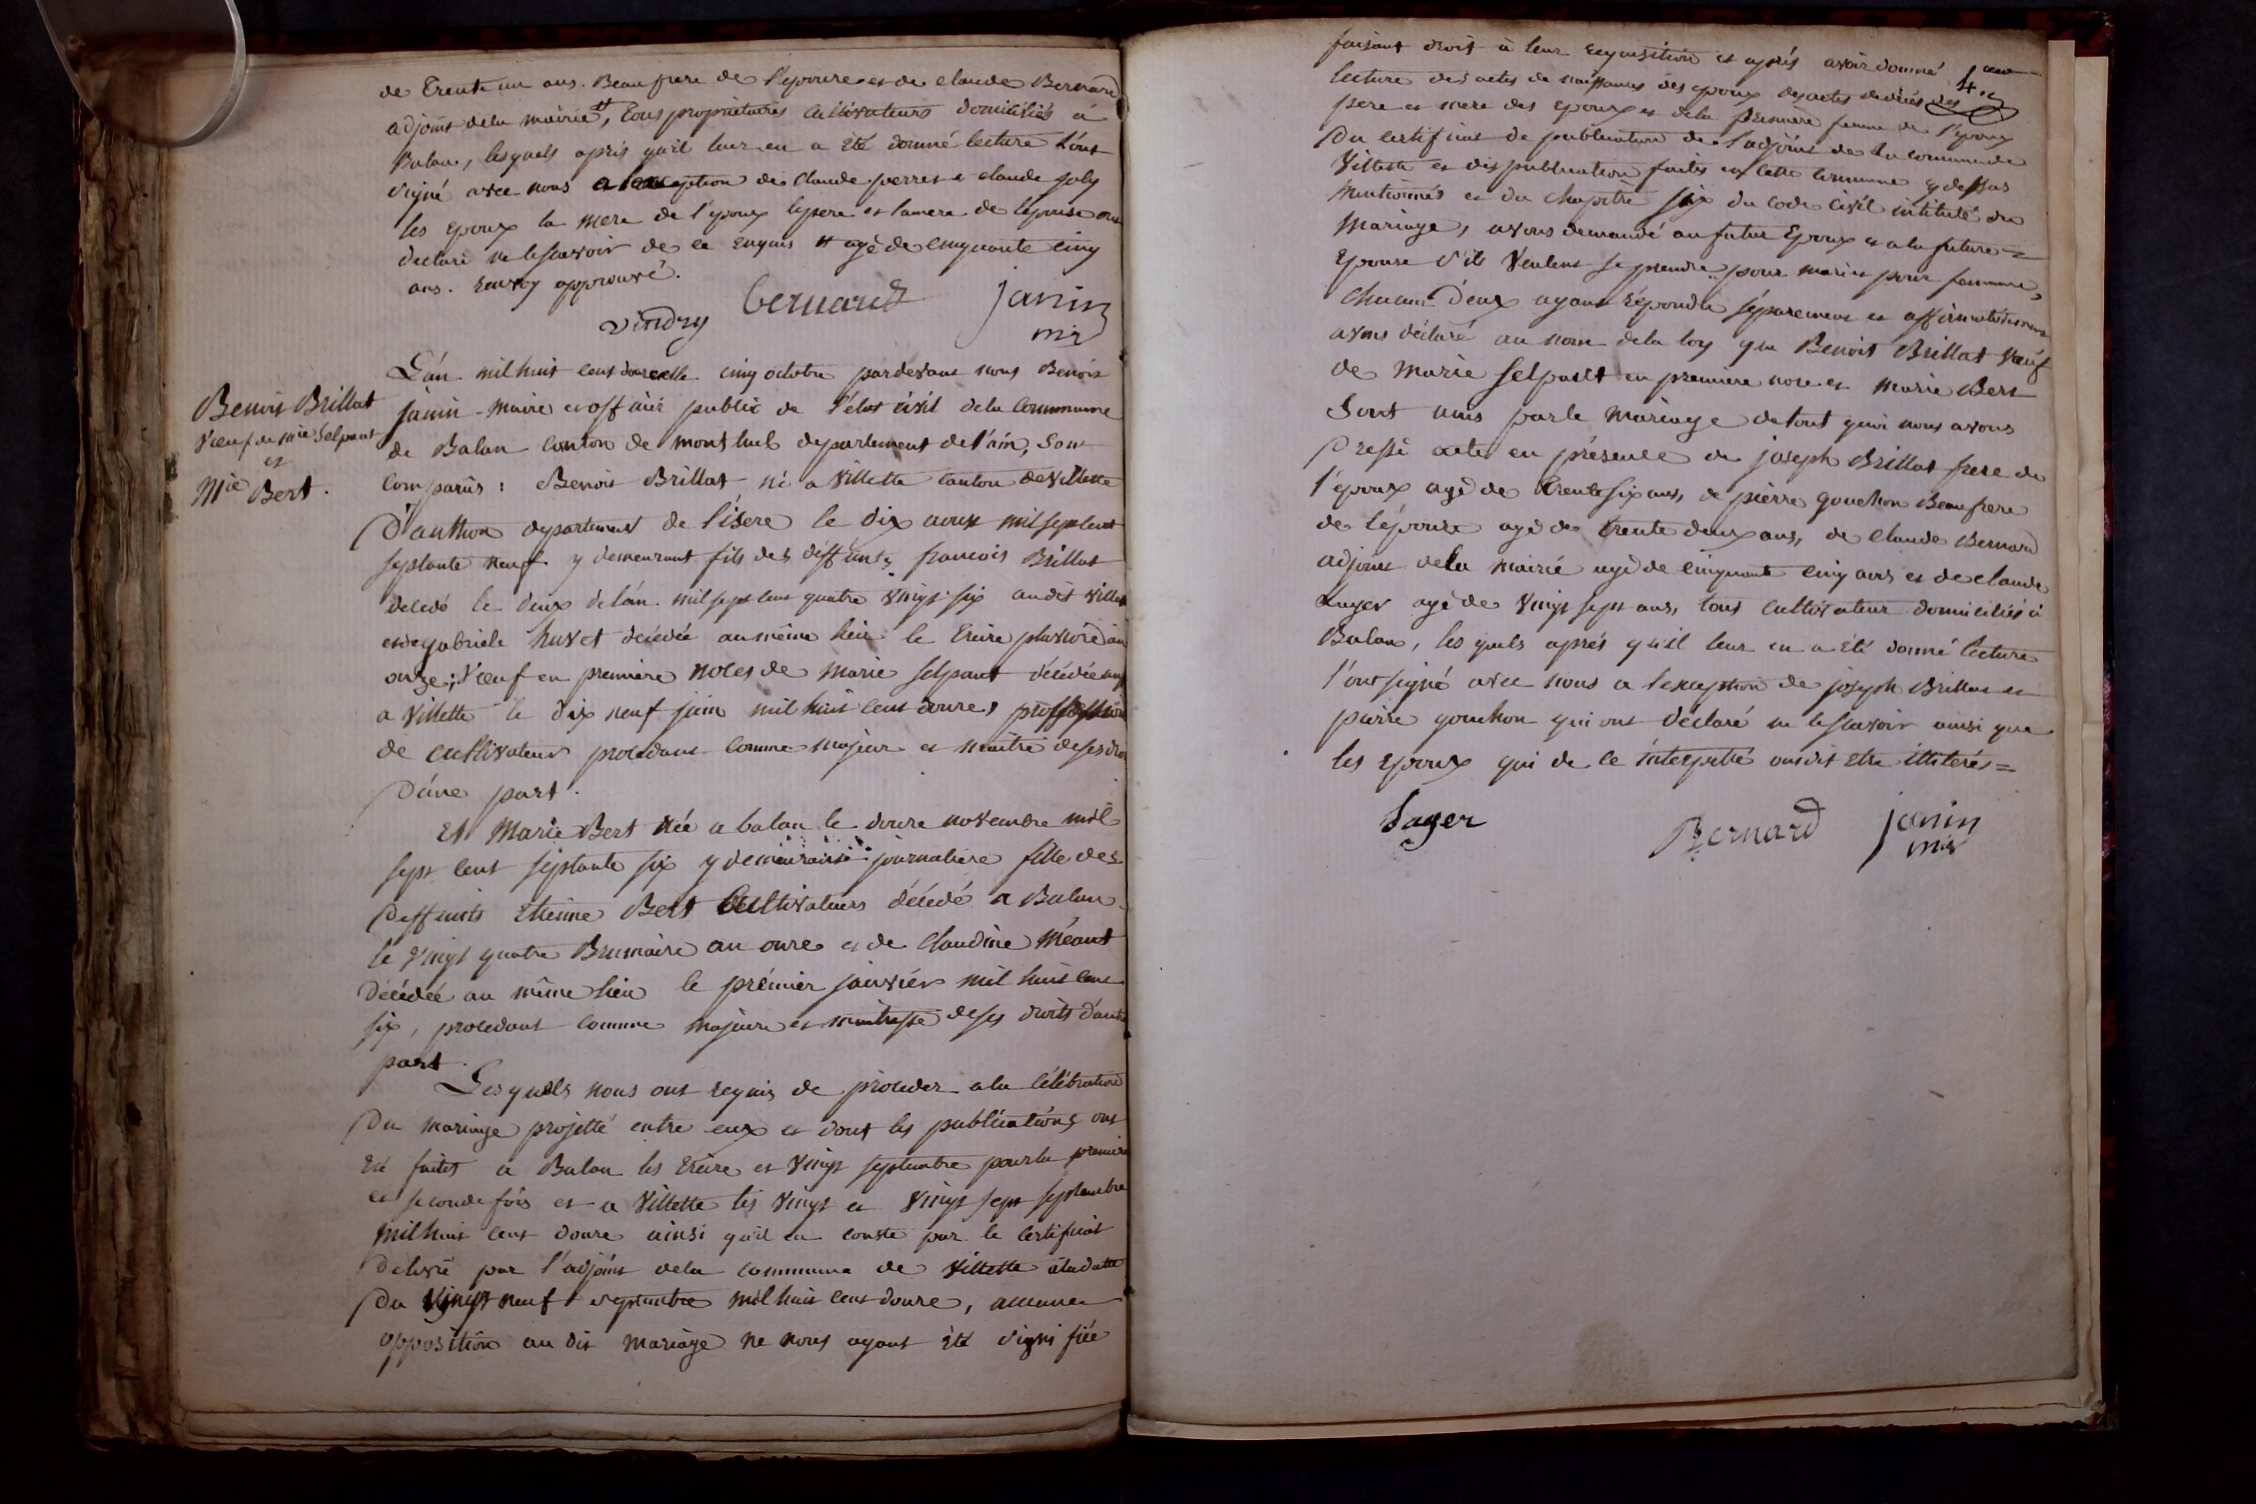 de Trente un ans. Beau frere de l'epouse et de claude Bernard
adjoint dela mairie, tous proprietaires cultivateurs domiciliés à
Balan, lesquels après qu'il leur en a été donné lecture l'ont
signé avec nous a l'exception de Claude perret et claude joly
les epoux la mere de l'epoux le pere et la mere de l'epouse ont
declaré ne le scavoir de ce enquis # agé de cinquante cinq
ans. renvoy approuvé.
vindry Bernard janin
mre
L'an mil huit cent douze et le cinq octobre pardevant nous Benoit
Benoit Brillat
veuf de Mie Selpant
et
Mie Bert.
janin maire et officier public de l'état civil dela Commune
de Balan canton de montluel departement de l'ain, sont
comparus: Benoit Brillat né a Villette canton de Villette
d'anthon departement de l'isere le dix aoux mil sept cent
septante neuf y demeurant fils des deffunts francois Brillat
décédé le deux de l'an mil sept cent quatre vingt six audit villette
et de gabriele huvet décédée au même lieu le treize pluviose an
onze; veuf en premiere noces de Marie selpant décédée aussi
a Villette le dix neuf juin mil huit cent douze, proffession
de cultivateur procedant comme majeur et maitre de ses droits
d'une part.
Et Marie Bert née a balan le douze novembre mil
sept cent septante six y demeurante journaliere fille des
deffunts Etienne Bert Cultivateurs décédé a Balan
le vingt quatre Brumaire an onze et de Claudine Méant
décédée au même lieu le premier janvier mil huit cent
six, procedant comme majeure et maitresse de ses droits d'autre
part.
Lesquels nous ont requis de proceder a la célébration
du mariage projetté entre eux et dont les publications ont
été faites a Balan les treize et vingt septembre pour la premiere
et seconde fois et a Villette les vingt et vingt sept septembre
mil huit cent douze ainsi qu'il en conste par le certificat
délivré par l'adjoint dela commune de Villette à la datte
du vingt neuf septembre mil huit cent douze, aucune
opposition au dit mariage ne nous ayant été signifiée
faisant droit à leur requisition et après avoir donné
lecture des actes de naissances des epoux des actes de décés des
pere et mere des epoux et dela premiere femme de l'epoux
du certificat de publication de l'adjoint de la commune de
Villette et des publication faites en cette commune cy dessus
mentionnés et du chapitre six du code civil intitulé du
mariage, avons demandé au futur epoux et a la future
epouse s'ils veulent se prendre pour mari et pour femme,
chacun d'eux ayant répondu séparement et affirmativement
avons déclaré au nom dela loy que Benoit Brillat veuf
de Marie selpant en premiere noce et Marie Bert
sont unis par le mariage de tout quoi nous avons
dressé acte en présence de joseph Brillat frere de
l'epoux agé de trente six ans, de pierre gouchon Beaufrere
de l'épouse agé de trente deux ans, de claude Bernard
adjoint dela mairie agé de cinquante cinq ans et de claude
Sager agé de vingt sept ans, tous cultivateur domiciliés à
Balan, les quels après qu'il leur en a été donné lecture
l'ont signé avec nous a l'exception de joseph Brillat et
pierre gouchon qui ont déclaré ne le scavoir ainsi que
les epoux qui de ce interpellé ont dit etre illiterés =
Sager Bernard janin
mre